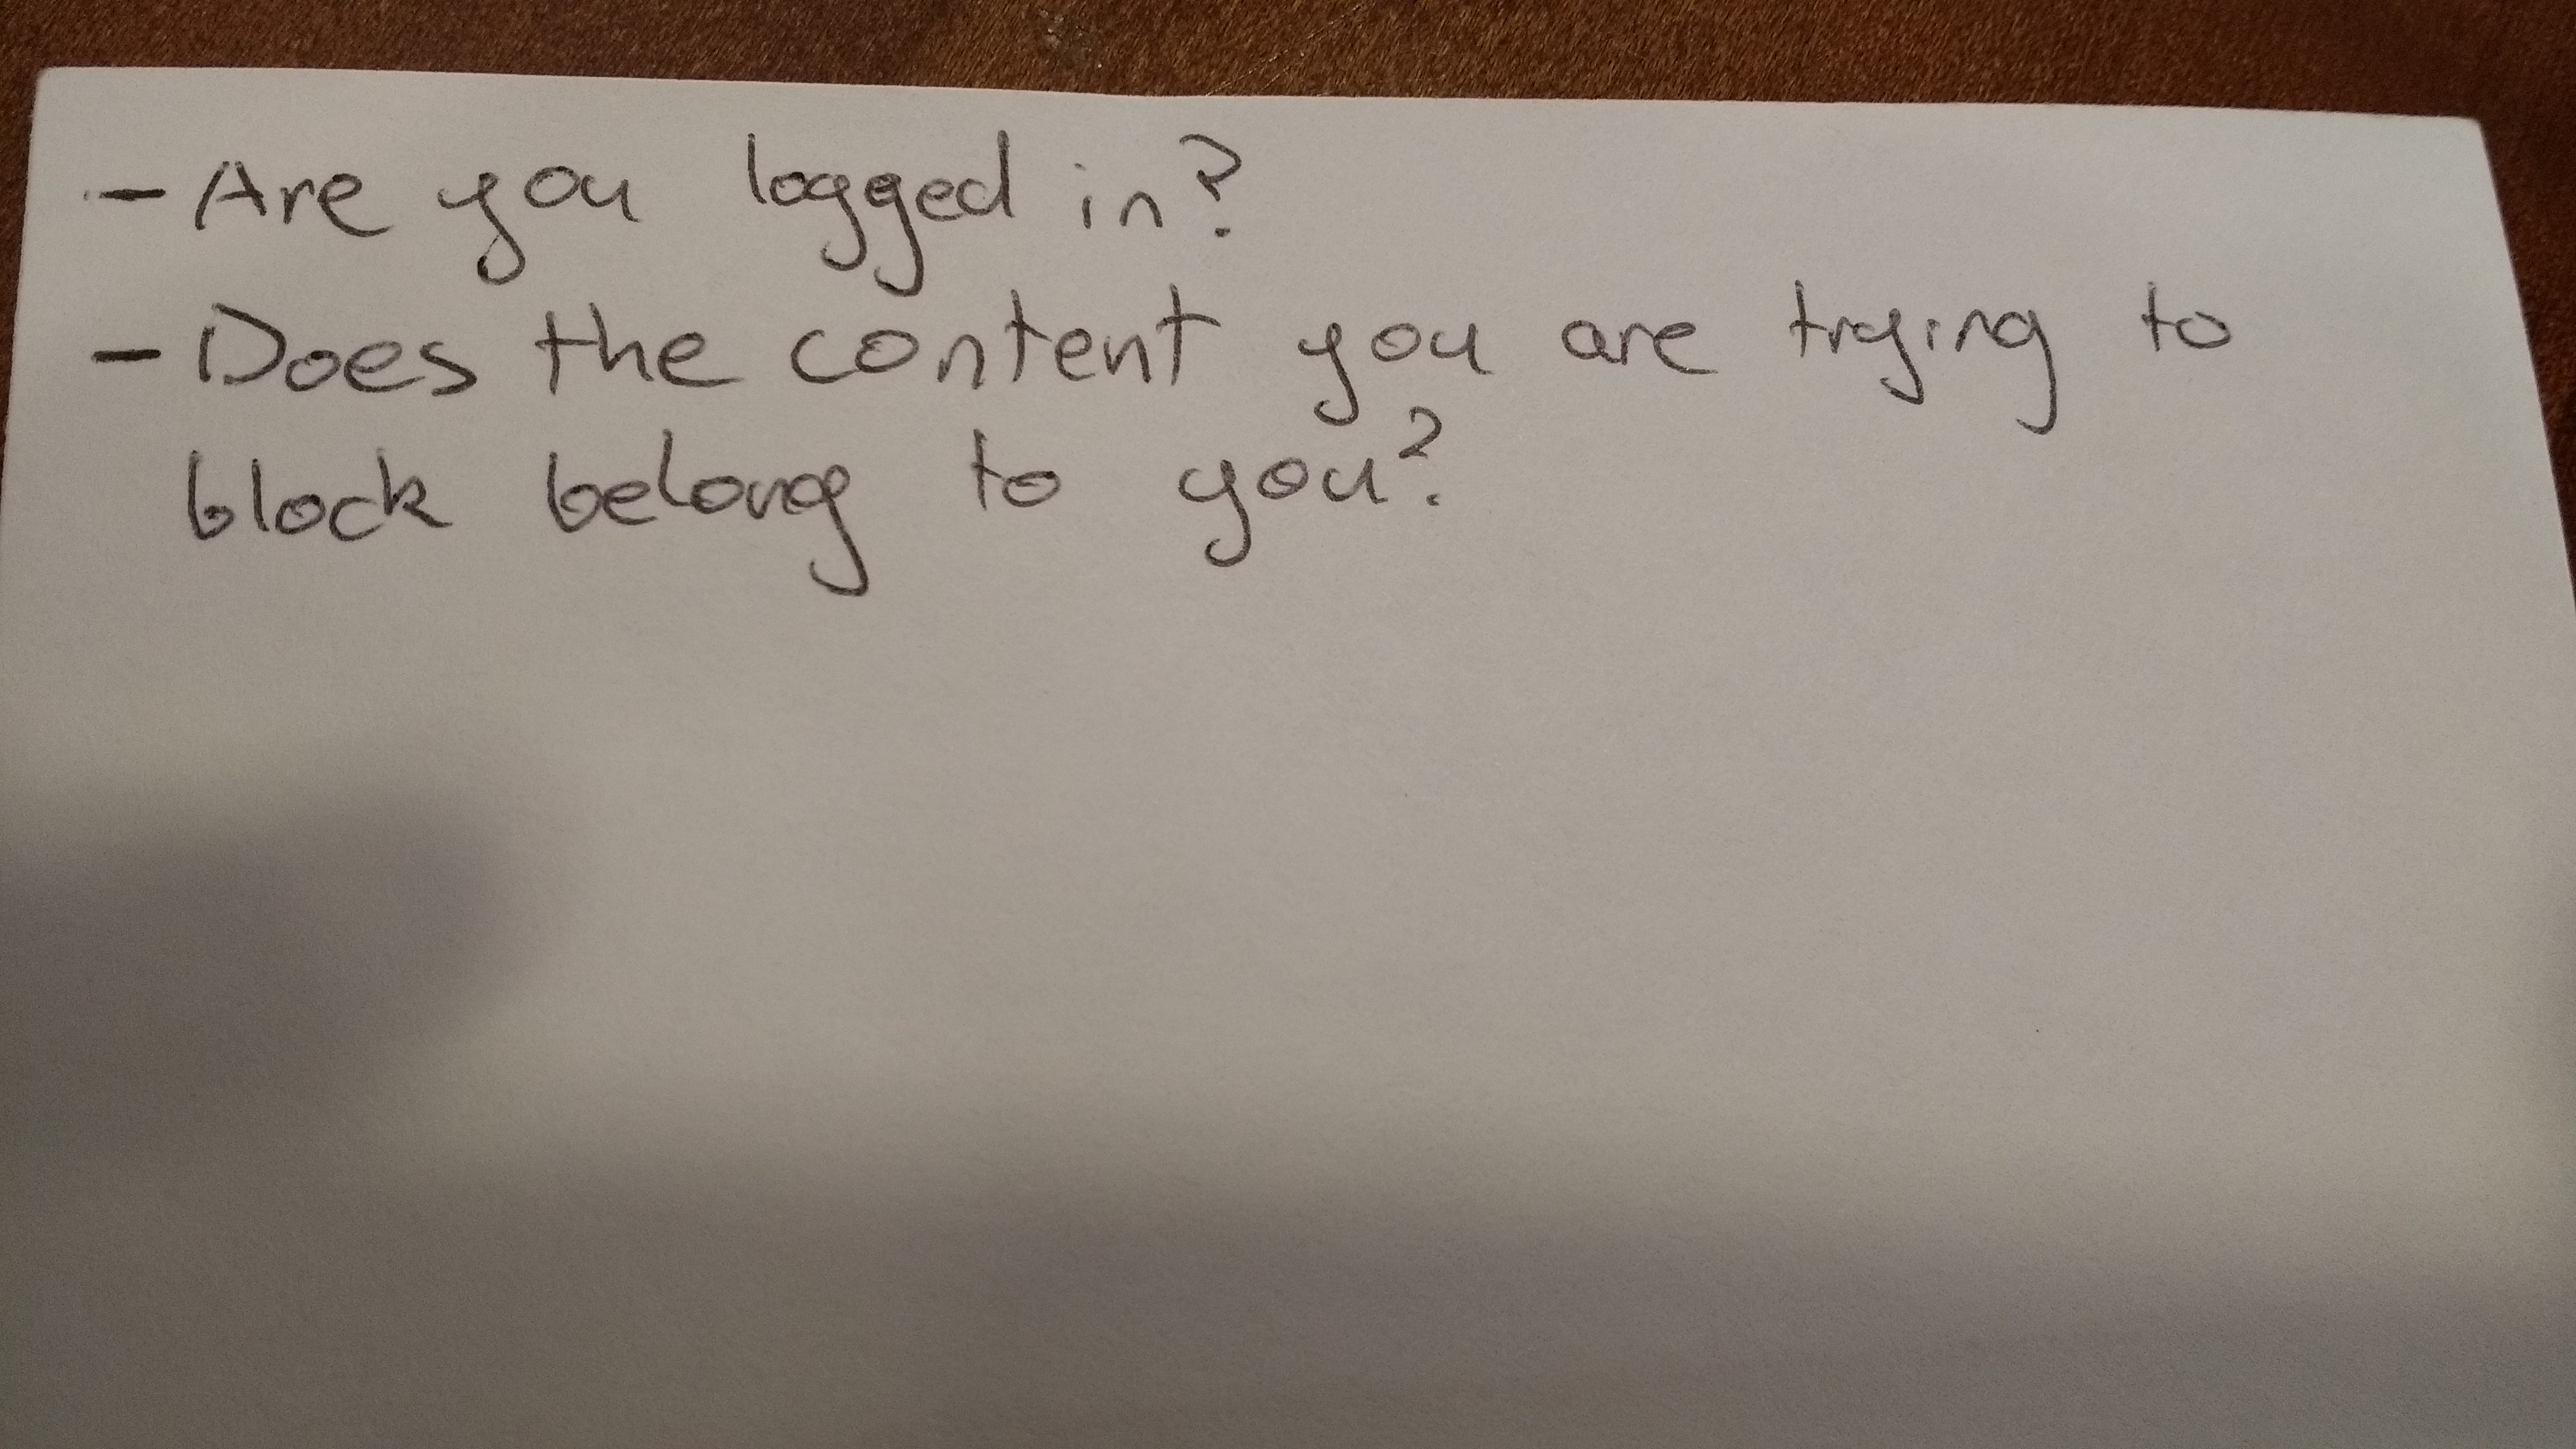 - Are you logged in?
- Does the content you are trying to
block belong to you?